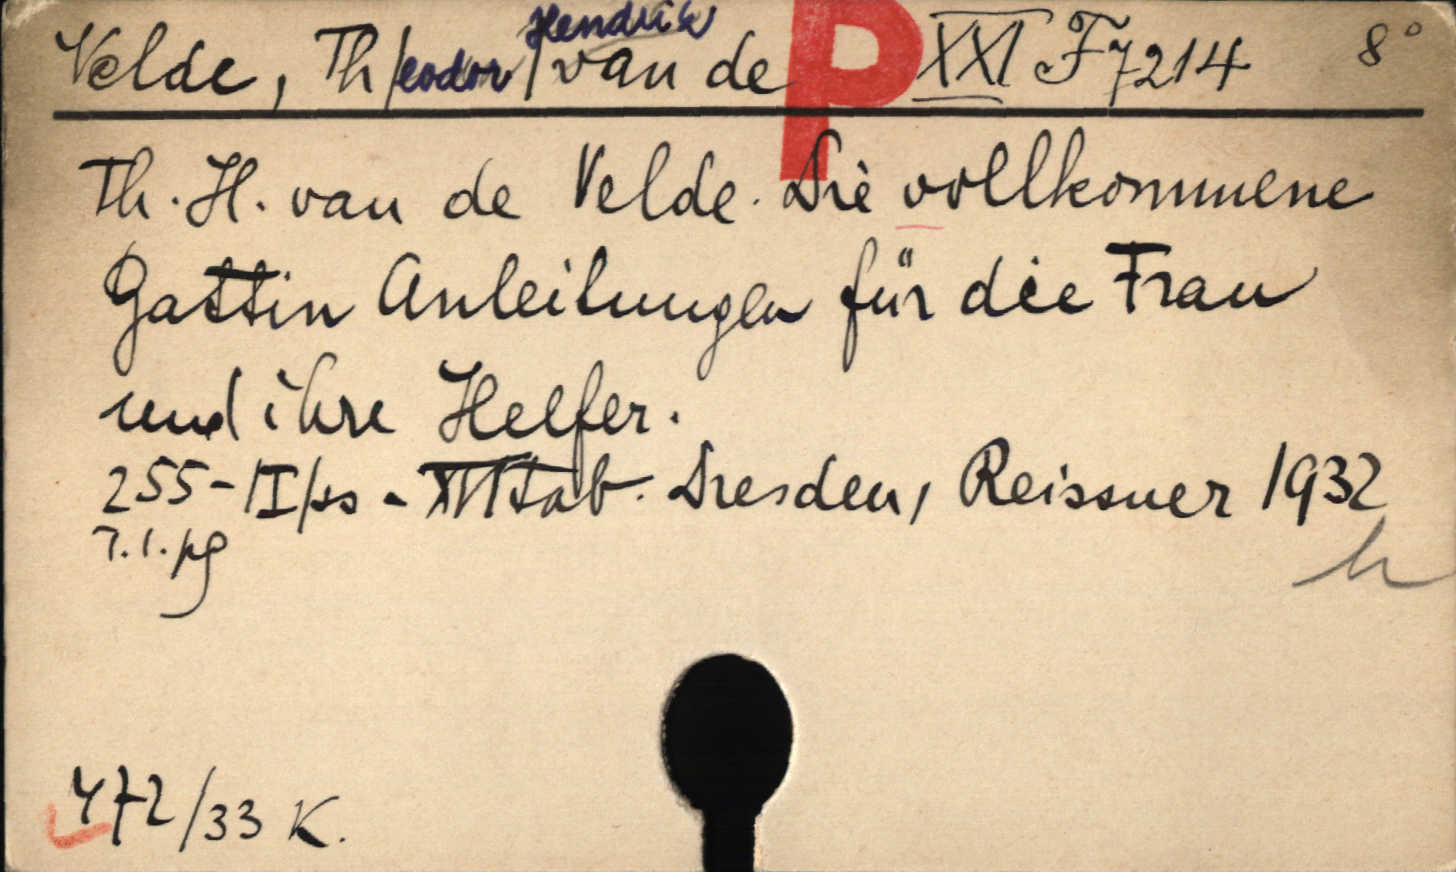 Velde, Th/eodor Hendrik/ van de P XXI F 7214 8°
Th. H. van de Velde. Die vollkommene
Gattin Anleitungen für die Frau
und ihre Helfer.
255-/I/ss - tab. Dresden, Reissner 1932
7.1.pg
472/33 K.